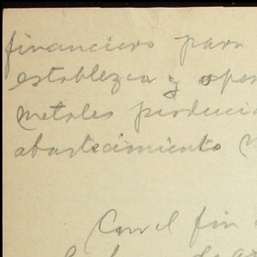 financiero para
establezca y ope
metales producid
abastecimiento
Con el fin